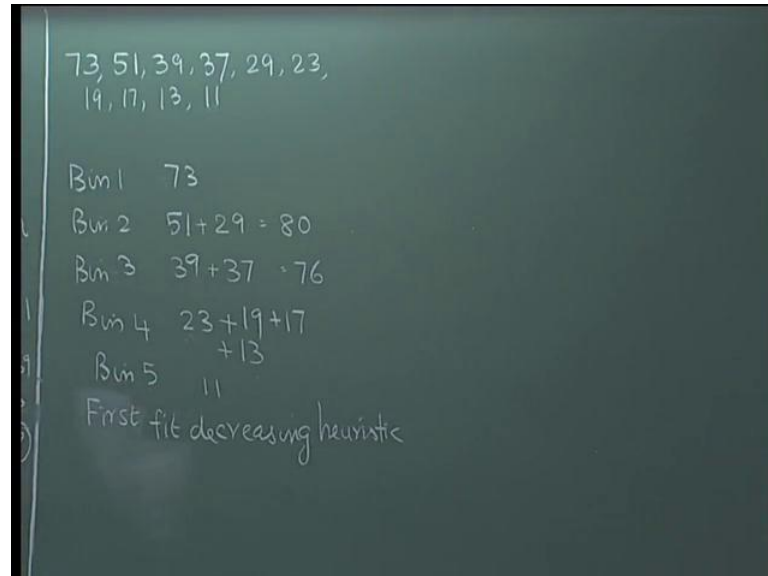 73, 51, 39, 37, 29, 23,
19, 17, 13, 11
Bin 1 73
Bin 2 51+29 = 80
Bin 3 39+37 = 76
Bin 4 23+19+17
+13
Bin 5 11
First fit decreasing heuristic